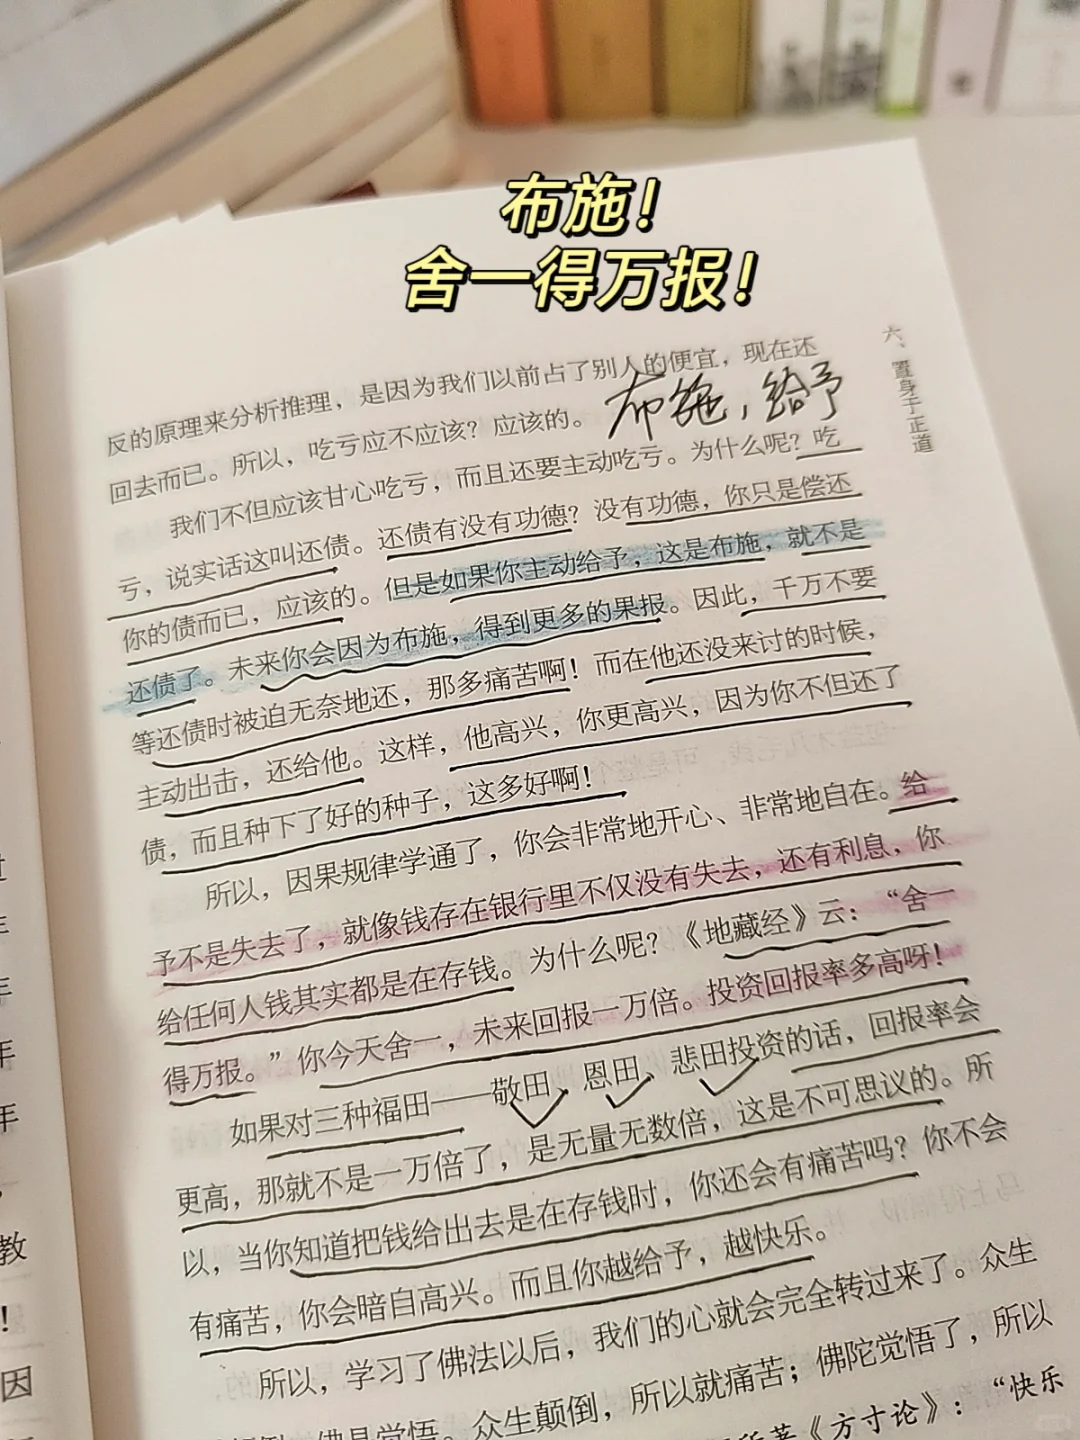 布施！
舍一得万报！
六、置身于正道
反的原理来分析推理，是因为我们以前占了别人的便宜，现在还
回去而已。所以，吃亏应不应该？应该的。
布施，给予
我们不但应该甘心吃亏，而且还要主动吃亏。为什么呢？吃
亏，说实话这叫还债。还债有没有功德？没有功德，你只是偿还
你的债而已，应该的。但是如果你主动给予，这是布施，就不是
还债了。未来你会因为布施，得到更多的果报。因此，千万不要
等还债时被迫无奈地还，那多痛苦啊！而在他还没来讨的时候，
主动出击，还给他。这样，他高兴，你更高兴，因为你不但还了
债，而且种下了好的种子，这多好啊！
所以，因果规律学通了，你会非常地开心、非常地自在。给
予不是失去了，就像钱存在银行里不仅没有失去，还有利息，你
给任何人钱其实都是在存钱。为什么呢？《地藏经》云：“舍一
得万报。”你今天舍一，未来回报一万倍。投资回报率多高呀！
如果对三种福田——敬田、恩田、悲田投资的话，回报率会
更高，那就不是一万倍了，是无量无数倍，这是不可思议的。所
以，当你知道把钱给出去是在存钱时，你还会有痛苦吗？你不会
有痛苦，你会暗自高兴。而且你越给予，越快乐。
所以，学习了佛法以后，我们的心就会完全转过来了。众生
佛是觉悟。众生颠倒，所以就痛苦；佛陀觉悟了，所以
《方寸论》：“快乐
年
年
年
年
教
！
因